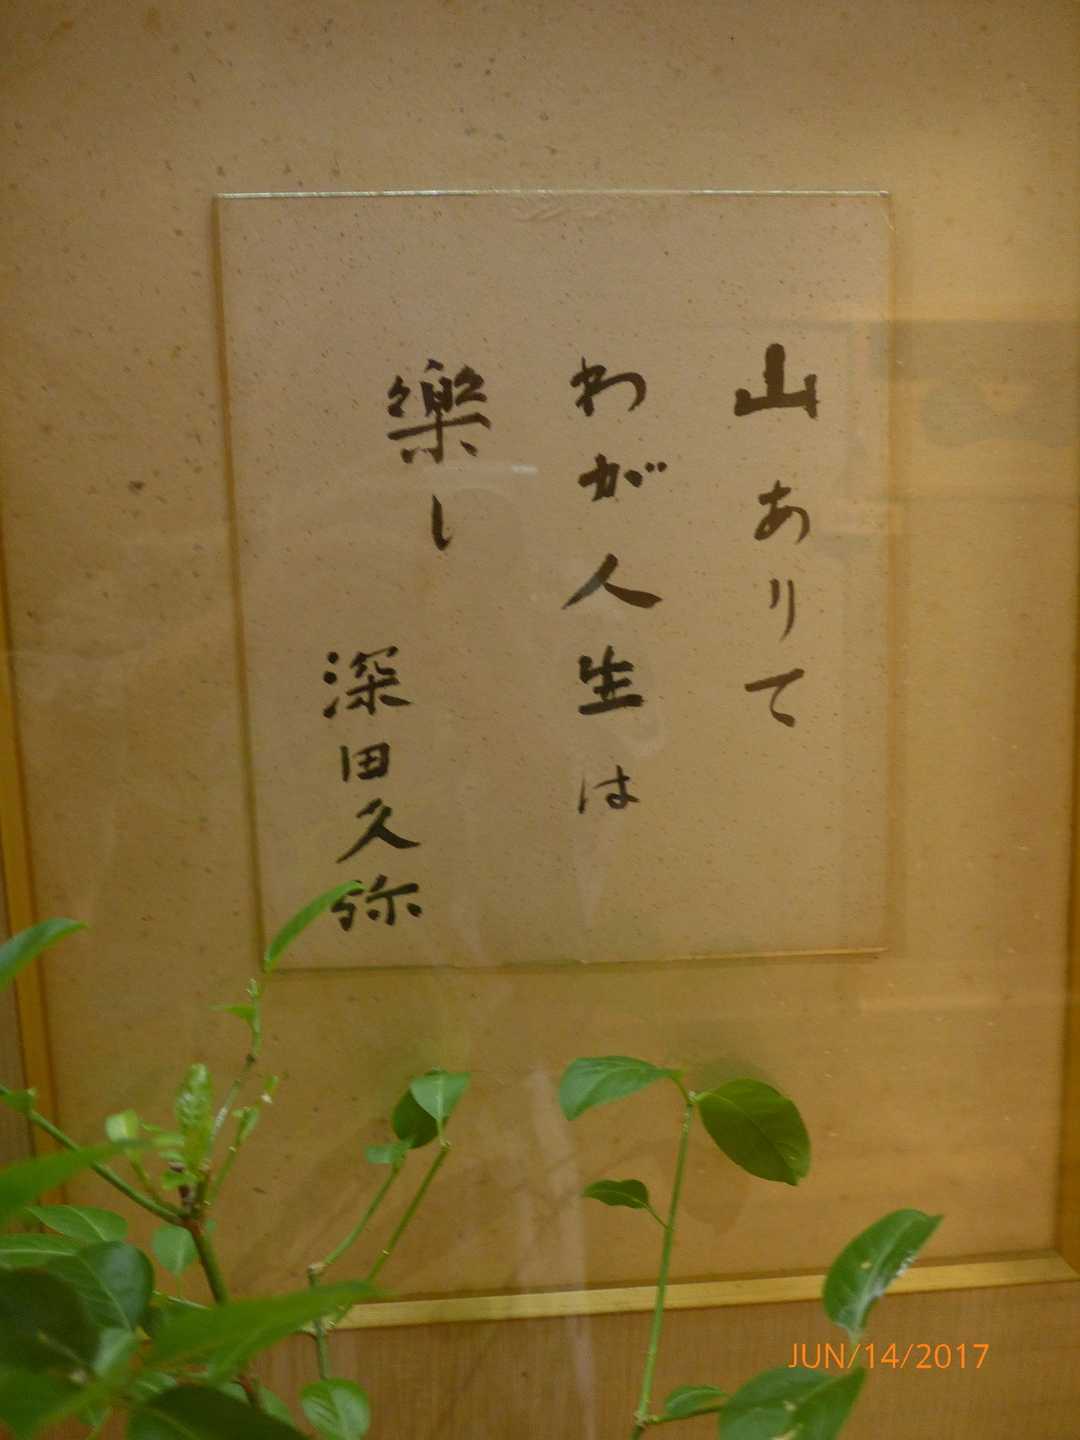 山ありて
わが人生は
樂し
深田久弥
JUN/14/2017